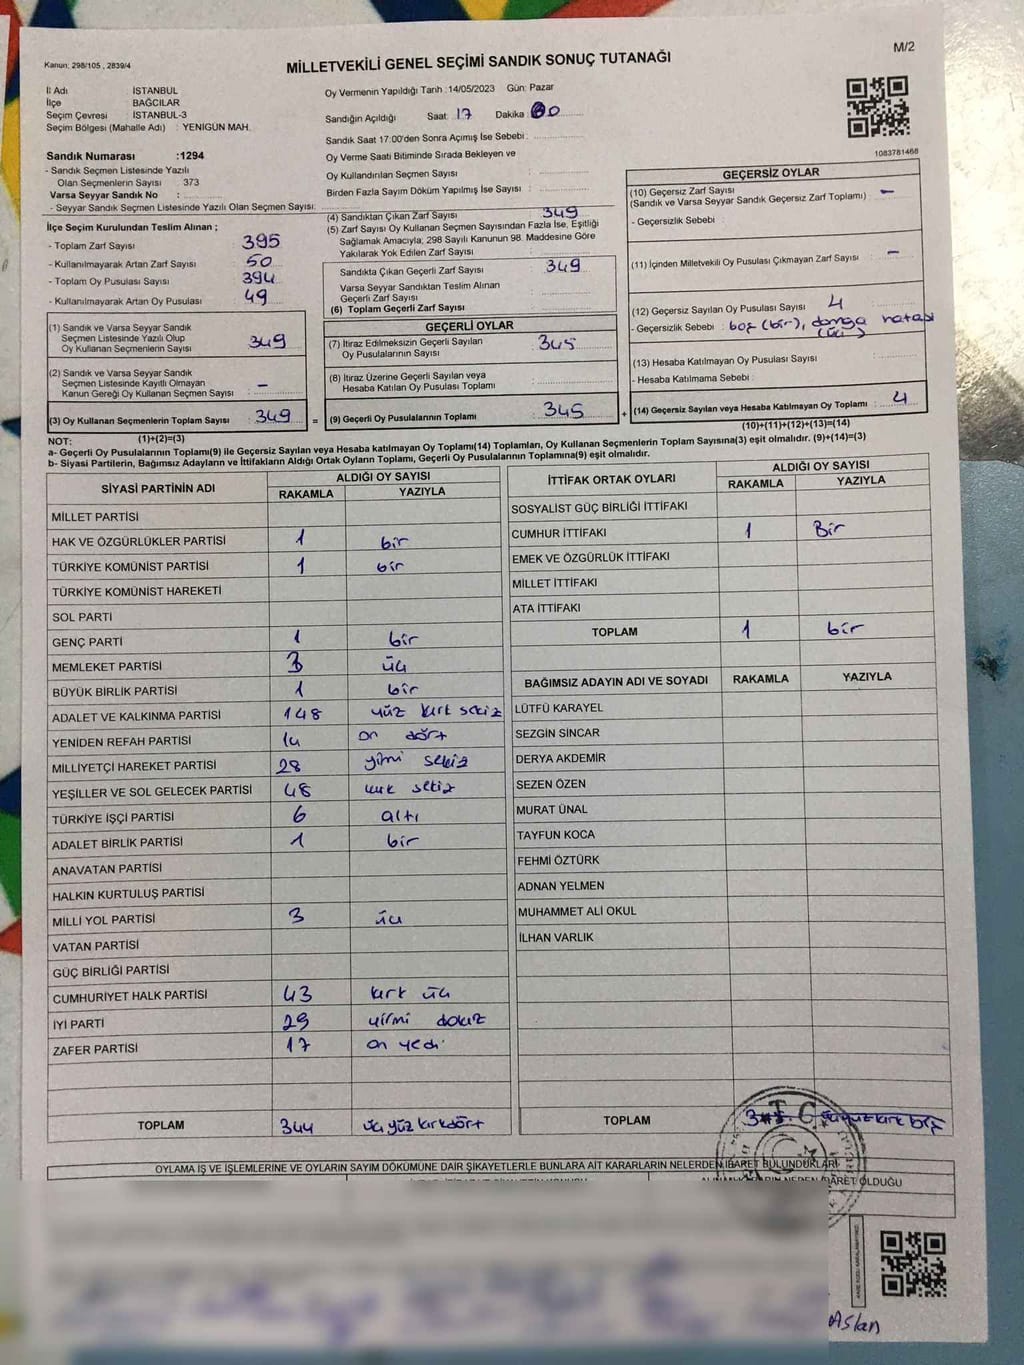 M/2
Kanun: 298/105, 2839/4
MİLLETVEKİLİ GENEL SEÇİMİ SANDIK SONUÇ TUTANAĞI
İl Adı İSTANBUL
İlçe BAĞCILAR
Seçim Çevresi : İSTANBUL-3
Seçim Bölgesi (Mahalle Adı) : YENİGÜN MAH.
Sandık Numarası :1294
- Sandık Seçmen Listesinde Yazılı
Olan Seçmenlerin Sayısı : 373
Varsa Seyyar Sandık No :
- Seyyar Sandık Seçmen Listesinde Yazılı Olan Seçmen Sayısı:
Oy Vermenin Yapıldığı Tarih :14/05/2023 Gün: Pazar
Sandığın Açıldığı Saat: 17 Dakika:
Sandık Saat 17:00'den Sonra Açılmış İse Sebebi :
Oy Verme Saati Bitiminde Sırada Bekleyen ve
Oy Kullandırılan Seçmen Sayısı :
Birden Fazla Sayım Döküm Yapılmış İse Sayısı :
1083781468
İlçe Seçim Kurulundan Teslim Alınan ;
- Toplam Zarf Sayısı : 395
- Kullanılmayarak Artan Zarf Sayısı : 50
- Toplam Oy Pusulası Sayısı : 394
- Kullanılmayarak Artan Oy Pusulası : 49
(1) Sandık ve Varsa Seyyar Sandık
Seçmen Listesinde Yazılı Olup
Oy Kullanan Seçmenlerin Sayısı : 349
(2) Sandık ve Varsa Seyyar Sandık
Seçmen Listesinde Kayıtlı Olmayan
Kanun Gereği Oy Kullanan Seçmen Sayısı : –
(3) Oy Kullanan Seçmenlerin Toplam Sayısı : 349 =
(1)+(2)=(3)
(4) Sandıktan Çıkan Zarf Sayısı : 349
(5) Zarf Sayısı Oy Kullanan Seçmen Sayısından Fazla İse, Eşitliği
Sağlamak Amacıyla; 298 Sayılı Kanunun 98. Maddesine Göre
Yakılarak Yok Edilen Zarf Sayısı :
Sandıkta Çıkan Geçerli Zarf Sayısı : 349
Varsa Seyyar Sandıktan Teslim Alınan
Geçerli Zarf Sayısı :
(6) Toplam Geçerli Zarf Sayısı :
GEÇERLİ OYLAR
(7) İtiraz Edilmeksizin Geçerli Sayılan
Oy Pusulalarının Sayısı : 345
(8) İtiraz Üzerine Geçerli Sayılan veya
Hesaba Katılan Oy Pusulası Toplamı :
(9) Geçerli Oy Pusulalarının Toplamı : 345 +
GEÇERSİZ OYLAR
(10) Geçersiz Zarf Sayısı : –
(Sandık ve Varsa Seyyar Sandık Geçersiz Zarf Toplamı)
- Geçersizlik Sebebi :
(11) İçinden Milletvekili Oy Pusulası Çıkmayan Zarf Sayısı : –
(12) Geçersiz Sayılan Oy Pusulası Sayısı : 4
- Geçersizlik Sebebi : boş (bir), damga hatası
(üç)
(13) Hesaba Katılmayan Oy Pusulası Sayısı :
- Hesaba Katılmama Sebebi :
(14) Geçersiz Sayılan veya Hesaba Katılmayan Oy Toplamı : 4
(10)+(11)+(12)+(13)=(14)
NOT:
a- Geçerli Oy Pusulalarının Toplamı(9) ile Geçersiz Sayılan veya Hesaba katılmayan Oy Toplamı(14) Toplamları, Oy Kullanan Seçmenlerin Toplam Sayısına(3) eşit olmalıdır. (9)+(14)=(3)
b- Siyasi Partilerin, Bağımsız Adayların ve İttifakların Aldığı Ortak Oyların Toplamı, Geçerli Oy Pusulalarının Toplamına(9) eşit olmalıdır.
SİYASİ PARTİNİN ADI ALDIĞI OY SAYISI
RAKAMLA YAZIYLA
MİLLET PARTİSİ
HAK VE ÖZGÜRLÜKLER PARTİSİ 1 bir
TÜRKİYE KOMÜNİST PARTİSİ 1 bir
TÜRKİYE KOMÜNİST HAREKETİ
SOL PARTİ
GENÇ PARTİ 1 bir
MEMLEKET PARTİSİ 3 üç
BÜYÜK BİRLİK PARTİSİ 1 bir
ADALET VE KALKINMA PARTİSİ 148 yüz kırk sekiz
YENİDEN REFAH PARTİSİ 14 on dört
MİLLİYETÇİ HAREKET PARTİSİ 28 yirmi sekiz
YEŞİLLER VE SOL GELECEK PARTİSİ 48 kırk sekiz
TÜRKİYE İŞÇİ PARTİSİ 6 altı
ADALET BİRLİK PARTİSİ 1 bir
ANAVATAN PARTİSİ
HALKIN KURTULUŞ PARTİSİ
MİLLİ YOL PARTİSİ 3 üç
VATAN PARTİSİ
GÜÇ BİRLİĞİ PARTİSİ
CUMHURİYET HALK PARTİSİ 43 kırk üç
İYİ PARTİ 29 yirmi dokuz
ZAFER PARTİSİ 17 on yedi
TOPLAM 344 üç yüz kırkdört
İTTİFAK ORTAK OYLARI ALDIĞI OY SAYISI
RAKAMLA YAZIYLA
SOSYALİST GÜÇ BİRLİĞİ İTTİFAKI
CUMHUR İTTİFAKI 1 Bir
EMEK VE ÖZGÜRLÜK İTTİFAKI
MİLLET İTTİFAKI
ATA İTTİFAKI
TOPLAM 1 bir
BAĞIMSIZ ADAYIN ADI VE SOYADI RAKAMLA YAZIYLA
LÜTFÜ KARAYEL
SEZGİN SİNCAR
DERYA AKDEMİR
SEZEN ÖZEN
MURAT ÜNAL
TAYFUN KOCA
FEHMİ ÖZTÜRK
ADNAN YELMEN
MUHAMMET ALİ OKUL
İLHAN VARLIK
TOPLAM
T.C.
OYLAMA İŞ VE İŞLEMLERİNE VE OYLARIN SAYIM DÖKÜMÜNE DAİR ŞİKAYETLERLE BUNLARA AİT KARARLARIN NELERDEN İBARET BULUNDUKLARI
Aslan